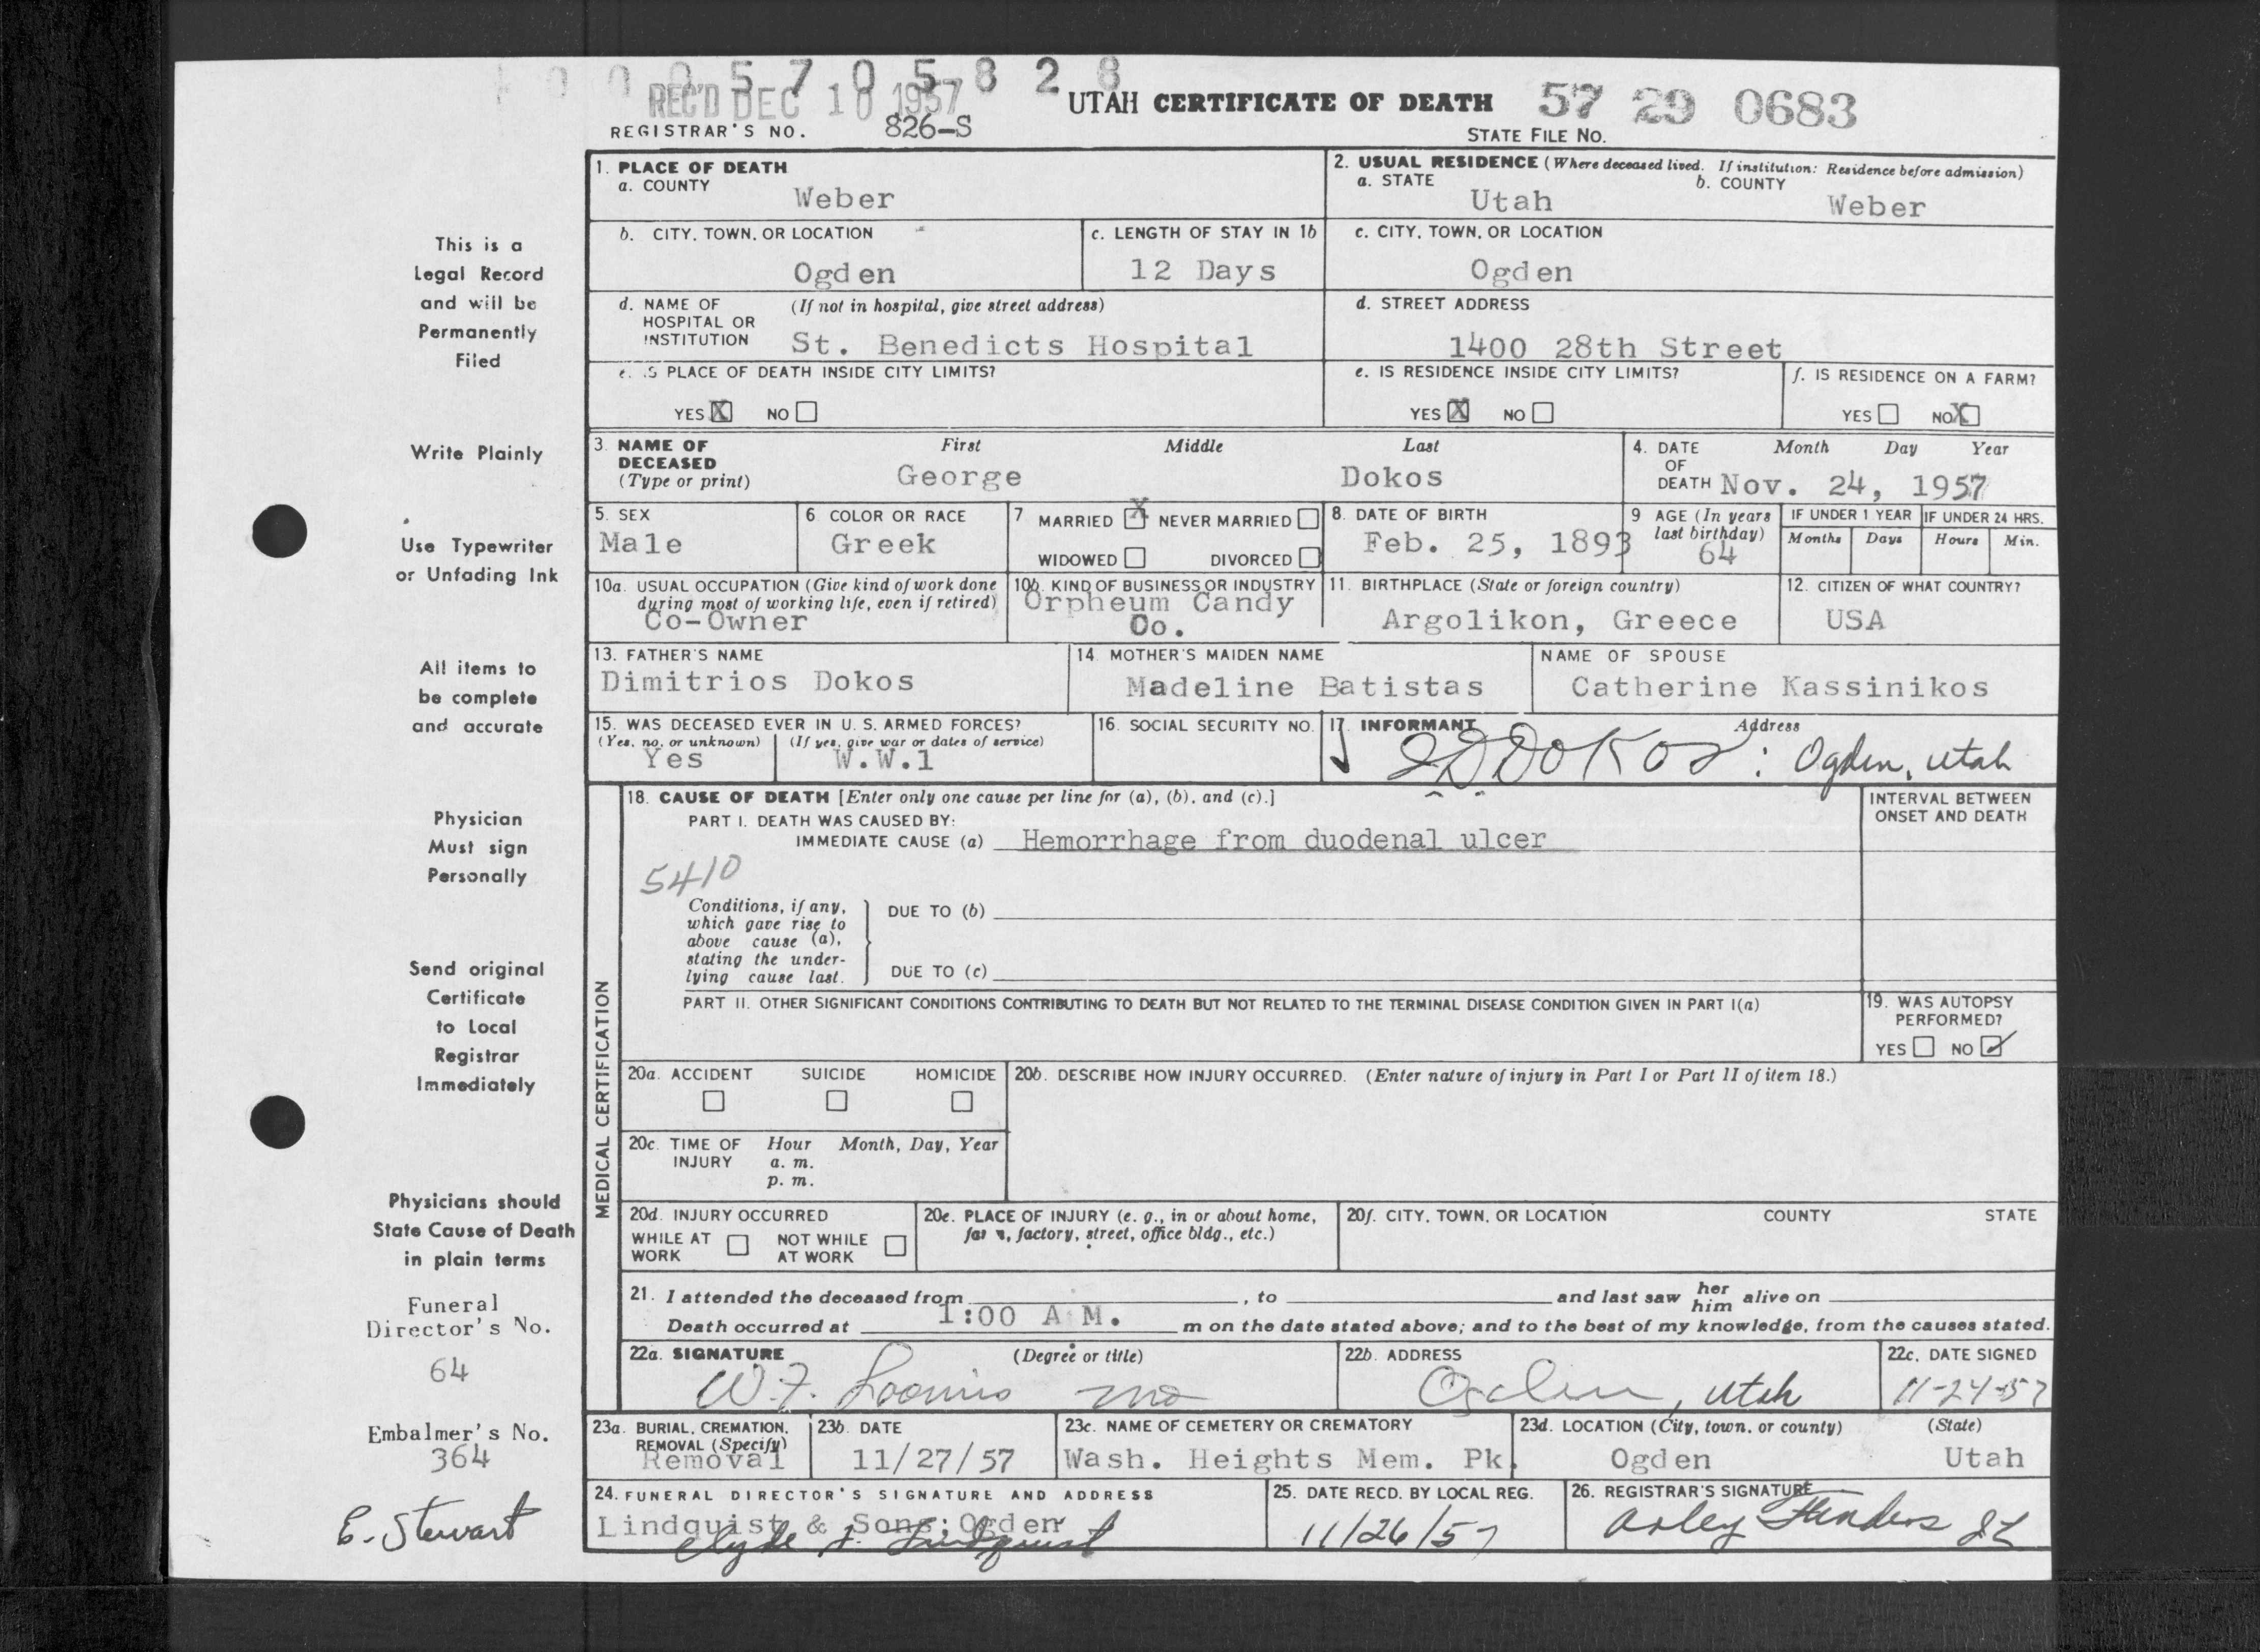 0 0 0 5 7 0 5 8 2 8
REC'D DEC 10 1957
UTAH CERTIFICATE OF DEATH 57 29 0683
REGISTRAR'S NO. 826-S STATE FILE NO.
This is a
Legal Record
and will be
Permanently
Filed
Write Plainly
Use Typewriter
or Unfading Ink
All items to
be complete
and accurate
Physician
Must sign
Personally
Send original
Certificate
to Local
Registrar
Immediately
Physicians should
State Cause of Death
in plain terms
Funeral
Director's No.
64
Embalmer's No.
364
E. Stewart
1. PLACE OF DEATH
a. COUNTY
Weber
2. USUAL RESIDENCE (Where deceased lived. If institution: Residence before admission)
a. STATE b. COUNTY
Utah Weber
b. CITY, TOWN, OR LOCATION
Ogden
c. LENGTH OF STAY IN 1b
12 Days
c. CITY, TOWN, OR LOCATION
Ogden
d. NAME OF (If not in hospital, give street address)
HOSPITAL OR
INSTITUTION St. Benedicts Hospital
d. STREET ADDRESS
1400 28th Street
e. IS PLACE OF DEATH INSIDE CITY LIMITS?
YES X NO
e. IS RESIDENCE INSIDE CITY LIMITS?
YES X NO
f. IS RESIDENCE ON A FARM?
YES NO X
3. NAME OF First Middle Last
DECEASED
(Type or print) George Dokos
4. DATE Month Day Year
OF
DEATH Nov. 24, 1957
5. SEX
Male
6 COLOR OR RACE
Greek
7 MARRIED X NEVER MARRIED
WIDOWED DIVORCED
8. DATE OF BIRTH
Feb. 25, 1893
9 AGE (In years
last birthday)
64
IF UNDER 1 YEAR IF UNDER 24 HRS.
Months Days Hours Min.
10a. USUAL OCCUPATION (Give kind of work done
during most of working life, even if retired)
Co-Owner
10b. KIND OF BUSINESS OR INDUSTRY
Orpheum Candy
Co.
11. BIRTHPLACE (State or foreign country)
Argolikon, Greece
12. CITIZEN OF WHAT COUNTRY?
USA
13. FATHER'S NAME
Dimitrios Dokos
14. MOTHER'S MAIDEN NAME
Madeline Batistas
NAME OF SPOUSE
Catherine Kassinikos
15. WAS DECEASED EVER IN U. S. ARMED FORCES?
(Yes, no, or unknown) (If yes, give war or dates of service)
Yes W.W.1
16. SOCIAL SECURITY NO.
17. INFORMANT Address
Dokos: Ogden, Utah
MEDICAL CERTIFICATION
18. CAUSE OF DEATH [Enter only one cause per line for (a), (b), and (c).]
PART I. DEATH WAS CAUSED BY:
IMMEDIATE CAUSE (a) Hemorrhage from duodenal ulcer
INTERVAL BETWEEN
ONSET AND DEATH
5410
Conditions, if any,
which gave rise to
above cause (a),
stating the under-
lying cause last.
DUE TO (b)
DUE TO (c)
PART II. OTHER SIGNIFICANT CONDITIONS CONTRIBUTING TO DEATH BUT NOT RELATED TO THE TERMINAL DISEASE CONDITION GIVEN IN PART I(a)
19. WAS AUTOPSY
PERFORMED?
YES NO ✓
20a. ACCIDENT SUICIDE HOMICIDE
20b. DESCRIBE HOW INJURY OCCURRED. (Enter nature of injury in Part I or Part II of item 18.)
20c. TIME OF Hour Month, Day, Year
INJURY a. m.
p. m.
20d. INJURY OCCURRED
WHILE AT NOT WHILE
WORK AT WORK
20e. PLACE OF INJURY (e. g., in or about home,
farm, factory, street, office bldg., etc.)
20f. CITY, TOWN, OR LOCATION COUNTY STATE
21. I attended the deceased from , to and last saw her him alive on
Death occurred at 1:00 A M. m on the date stated above; and to the best of my knowledge, from the causes stated.
22a. SIGNATURE (Degree or title)
W. F. Loomis MD
22b. ADDRESS
Ogden, Utah
22c. DATE SIGNED
11-24-57
23a. BURIAL, CREMATION,
REMOVAL (Specify)
Removal
23b. DATE
11/27/57
23c. NAME OF CEMETERY OR CREMATORY
Wash. Heights Mem. Pk.
23d. LOCATION (City, town, or county) (State)
Ogden Utah
24. FUNERAL DIRECTOR'S SIGNATURE AND ADDRESS
Lindquist & Sons; Ogden
Clyde J. Lindquist
25. DATE RECD. BY LOCAL REG.
11/26/57
26. REGISTRAR'S SIGNATURE
Arley Flinders